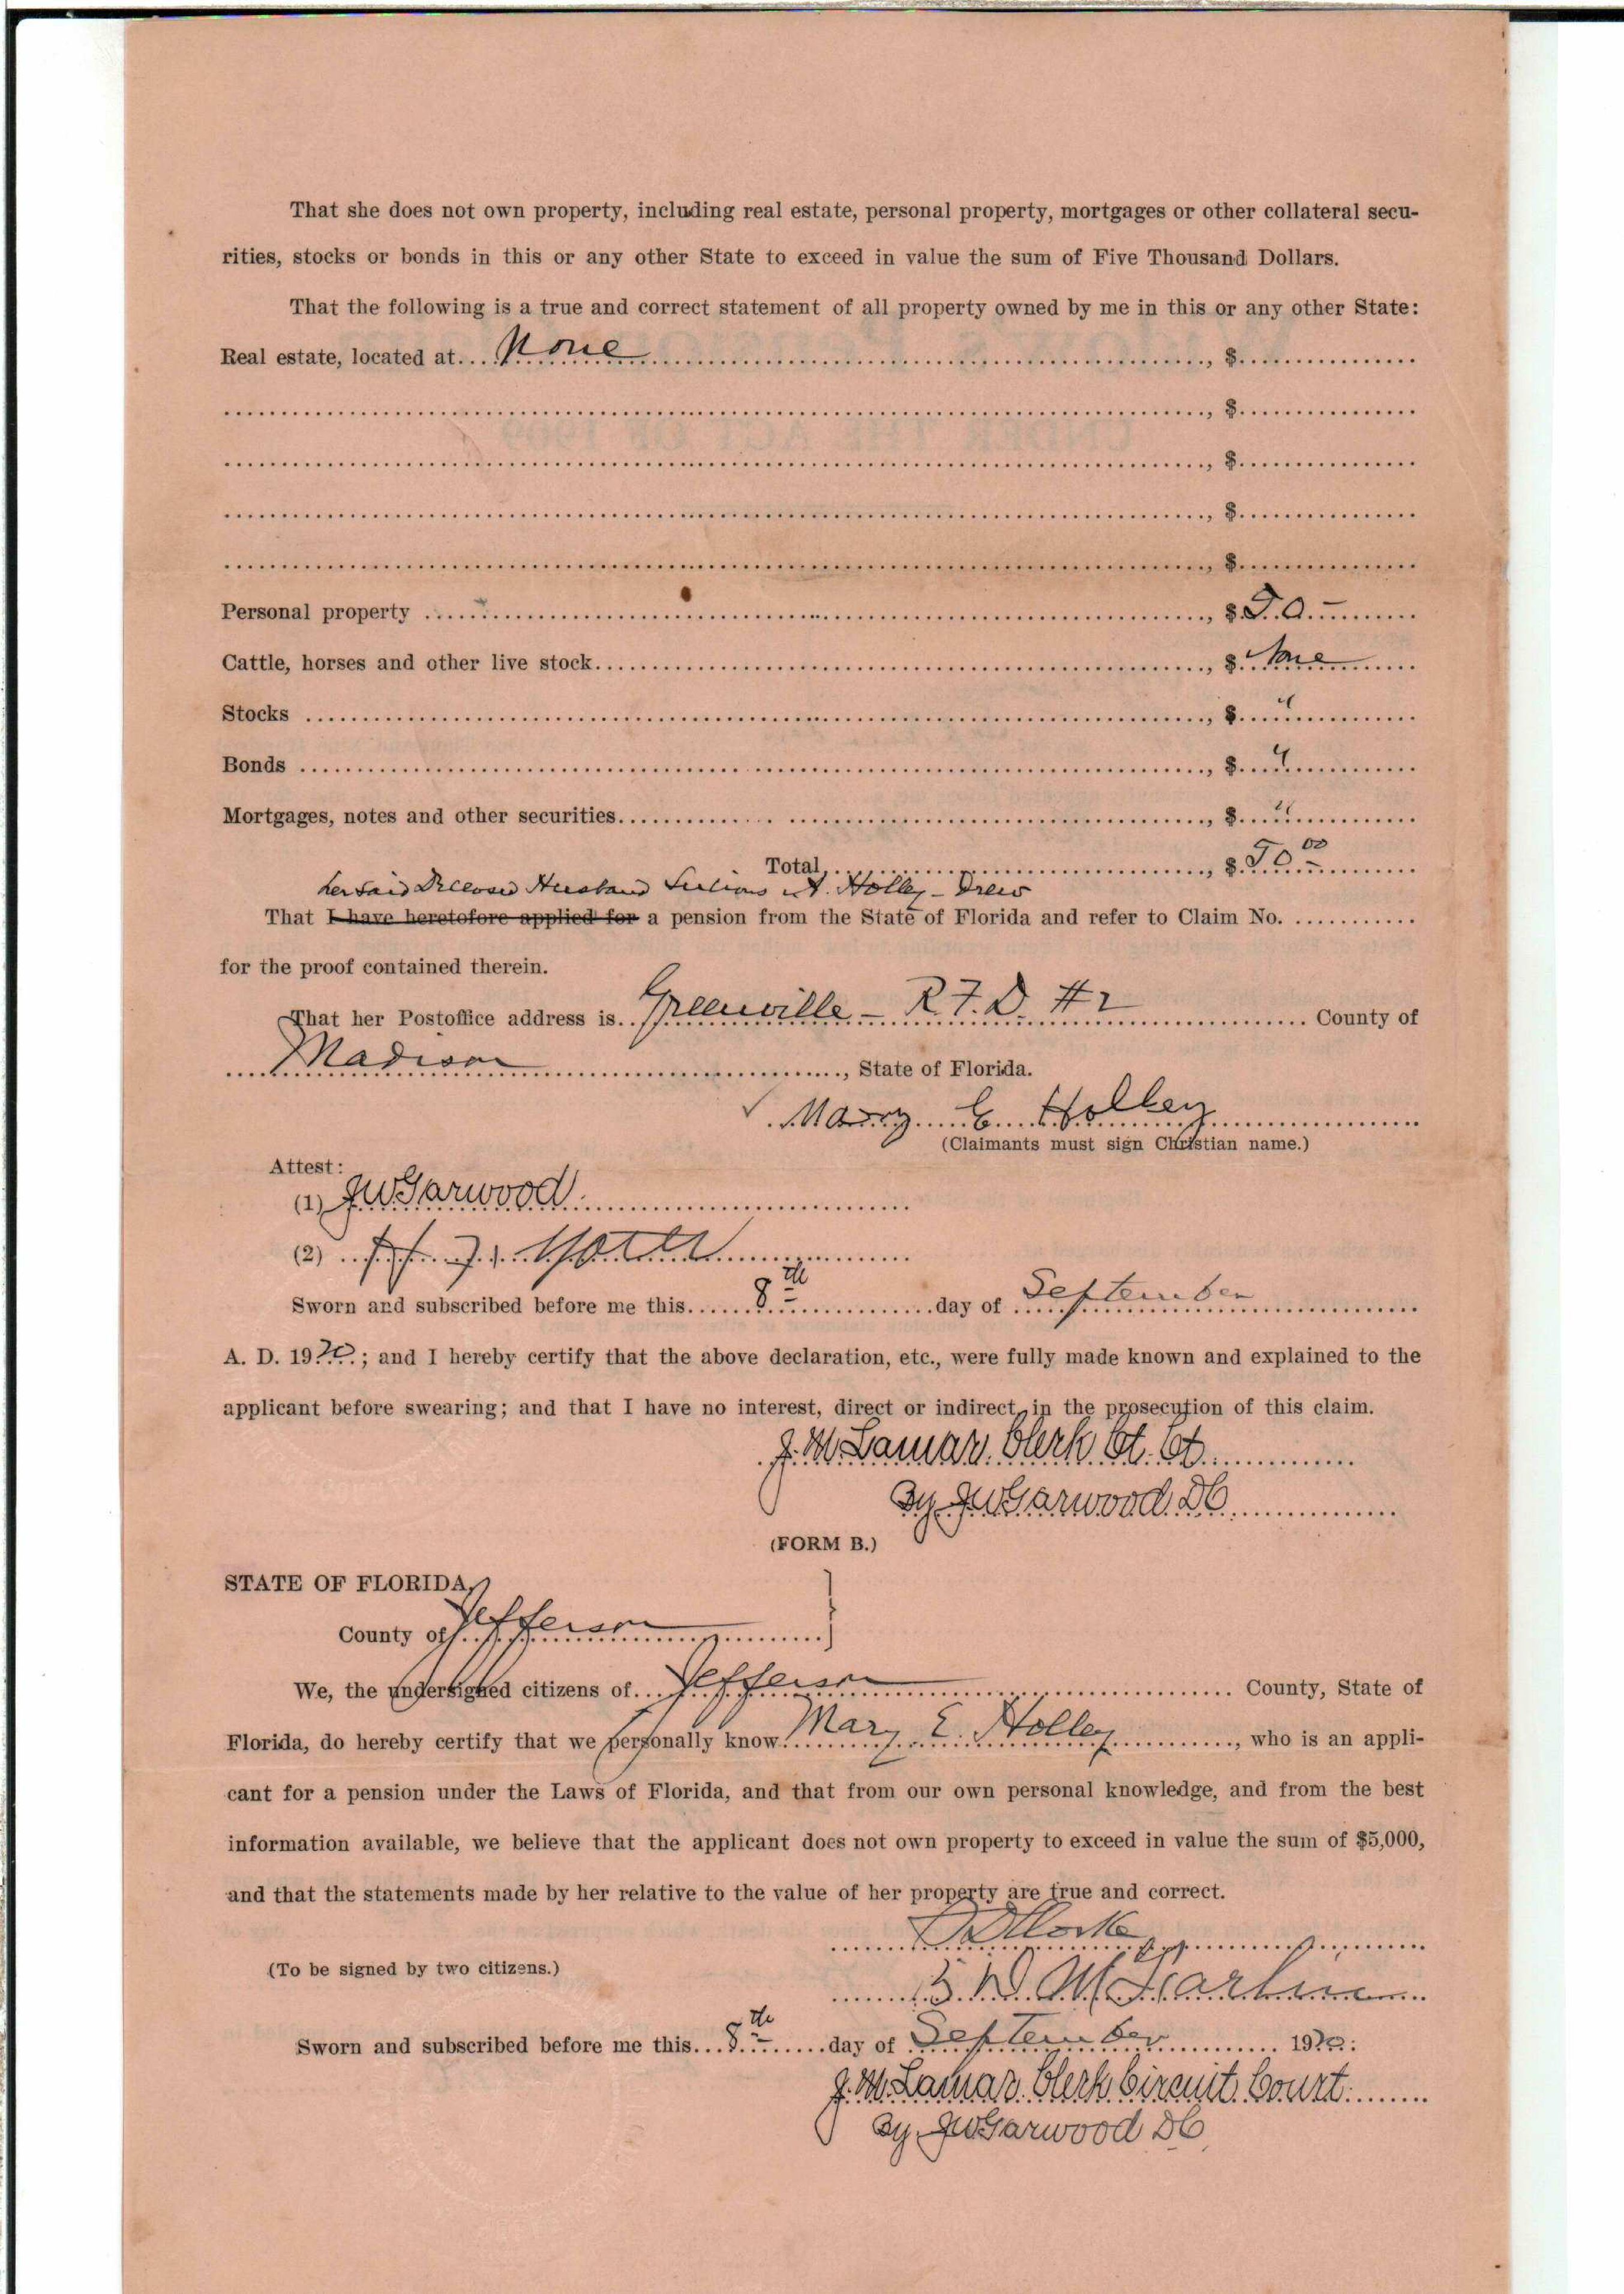 That she does not own property, including real estate, personal property, mortgages or other collateral secu-
rities, stocks or bonds in this or any other State to exceed in value the sum of Five Thousand Dollars.
That the following is a true and correct statement of all property owned by me in this or any other State:
Real estate, located at.... None ...., $....
...., $....
...., $....
...., $....
...., $....
Personal property ...., $ 50.—
Cattle, horses and other live stock...., $ None
Stocks ...., $ "
Bonds ...., $ "
Mortgages, notes and other securities...., $ "
Total...., $ 50 00
her said Deceased Husband A. Holley - Drew
That I have heretofore applied for a pension from the State of Florida and refer to Claim No. ....
for the proof contained therein.
That her Postoffice address is.. Greenville - R.F.D. #2 .... County of
Madison ...., State of Florida.
✓ Mary E. Holley
(Claimants must sign Christian name.)
Attest:
(1) J W Garwood
(2)
Sworn and subscribed before me this.... 8th ....day of September
A. D. 1920; and I hereby certify that the above declaration, etc., were fully made known and explained to the
applicant before swearing; and that I have no interest, direct or indirect, in the prosecution of this claim.
J. M. Lamar. Clerk Ct. Ct.
By J W Garwood DC
(FORM B.)
STATE OF FLORIDA,
County of Jefferson
We, the undersigned citizens of.... Jefferson .... County, State of
Florida, do hereby certify that we personally know Mary E. Holley ...., who is an appli-
cant for a pension under the Laws of Florida, and that from our own personal knowledge, and from the best
information available, we believe that the applicant does not own property to exceed in value the sum of $5,000,
and that the statements made by her relative to the value of her property are true and correct.
(To be signed by two citizens.)
Sworn and subscribed before me this.... 8th ....day of September .... 1920:
J. M. Lamar. Clerk Circuit Court.
By J W Garwood DC